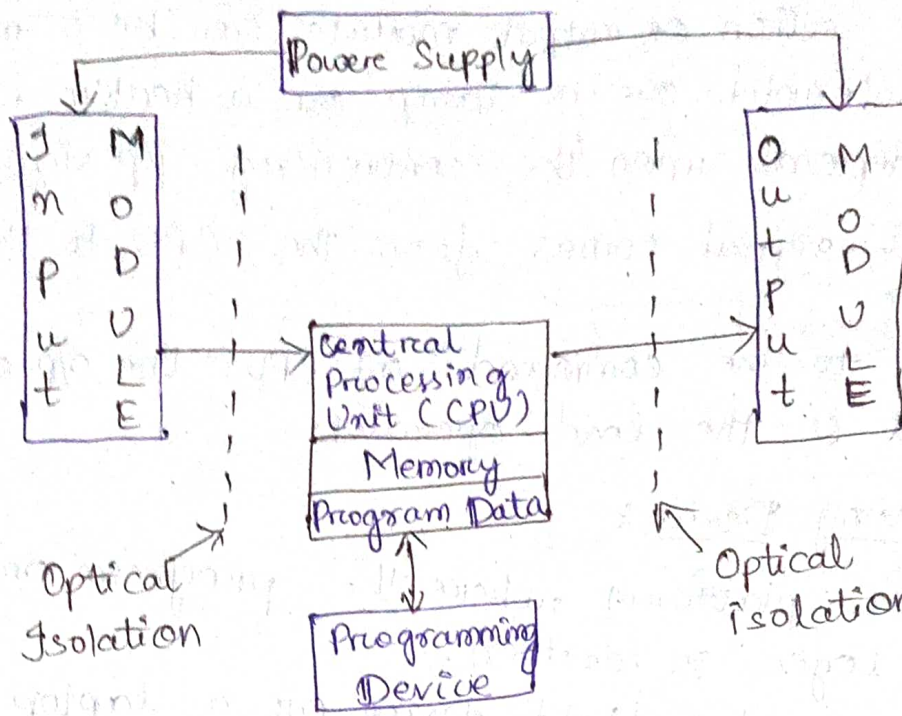 Powere Supply
Input
MODULE
Output
MODULE
Centrcal
Processing
Unit (CPU)
Memory
Program Data
Optical
Isolation
Optical
isolation
Programming
Device